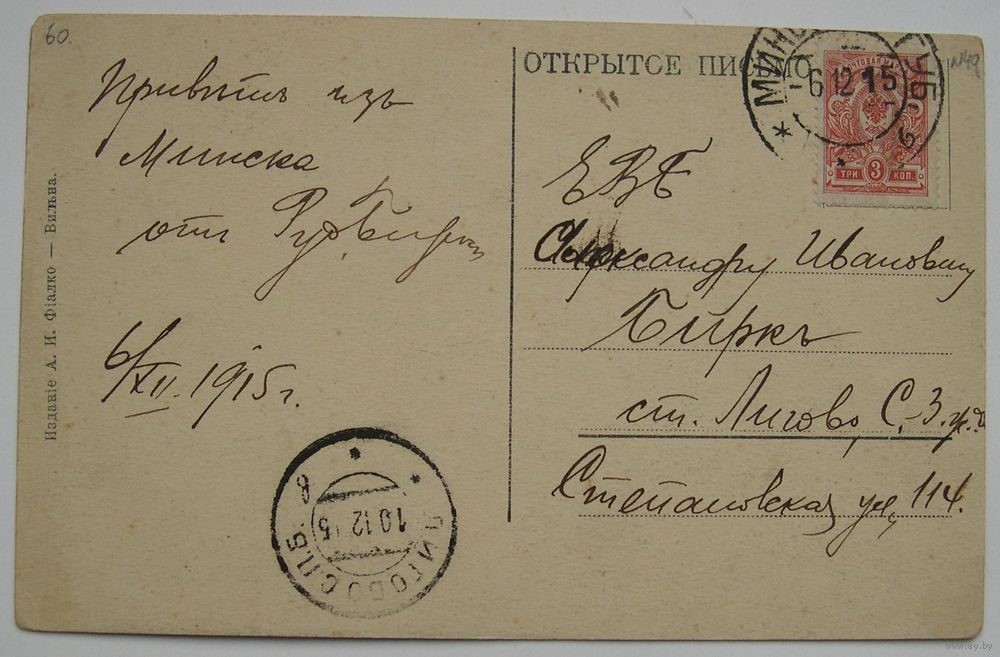 60.
Привѣтъ изъ
Минска
отъ
6/XII. 1915 г.
Изданіе А. И. Фіалко — Вильна.
ОТКРЫТОЕ ПИСЬМО
N49
МИНСКЪ ГУБ. 6
-6 12 15
ПОЧТОВАЯ МАРКА
ТРИ 3 КОП.
ЕВБ
Александру Ивановичу
Биркъ
ст. Лигово, С.-З. ж. д.
Степановская ул, 114.
ЛИГОВО С.П.Б. в
10 12 15
www.ay.by